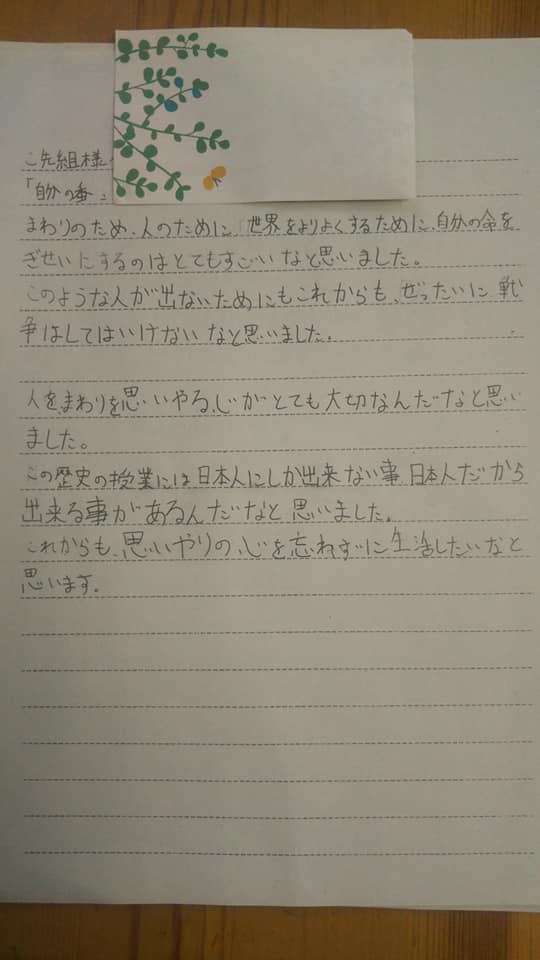 ご先組様
「自分の番
まわりのため、人のために「世界をよりよくするために、自分の命を
ぎせいにするのはとてもすごいなと思いました。
このような人が出ないためにもこれからも、ぜったいに戦
争はしてはいけないなと思いました。
人をまわりを思いやる心がとても大切なんだなと思い
ました。
この歴史の授業には日本人にしか出来ない事、日本人だから
出来る事があるんだなと思いました。
これからも、思いやりの心を忘れずに生活したいなと
思います。